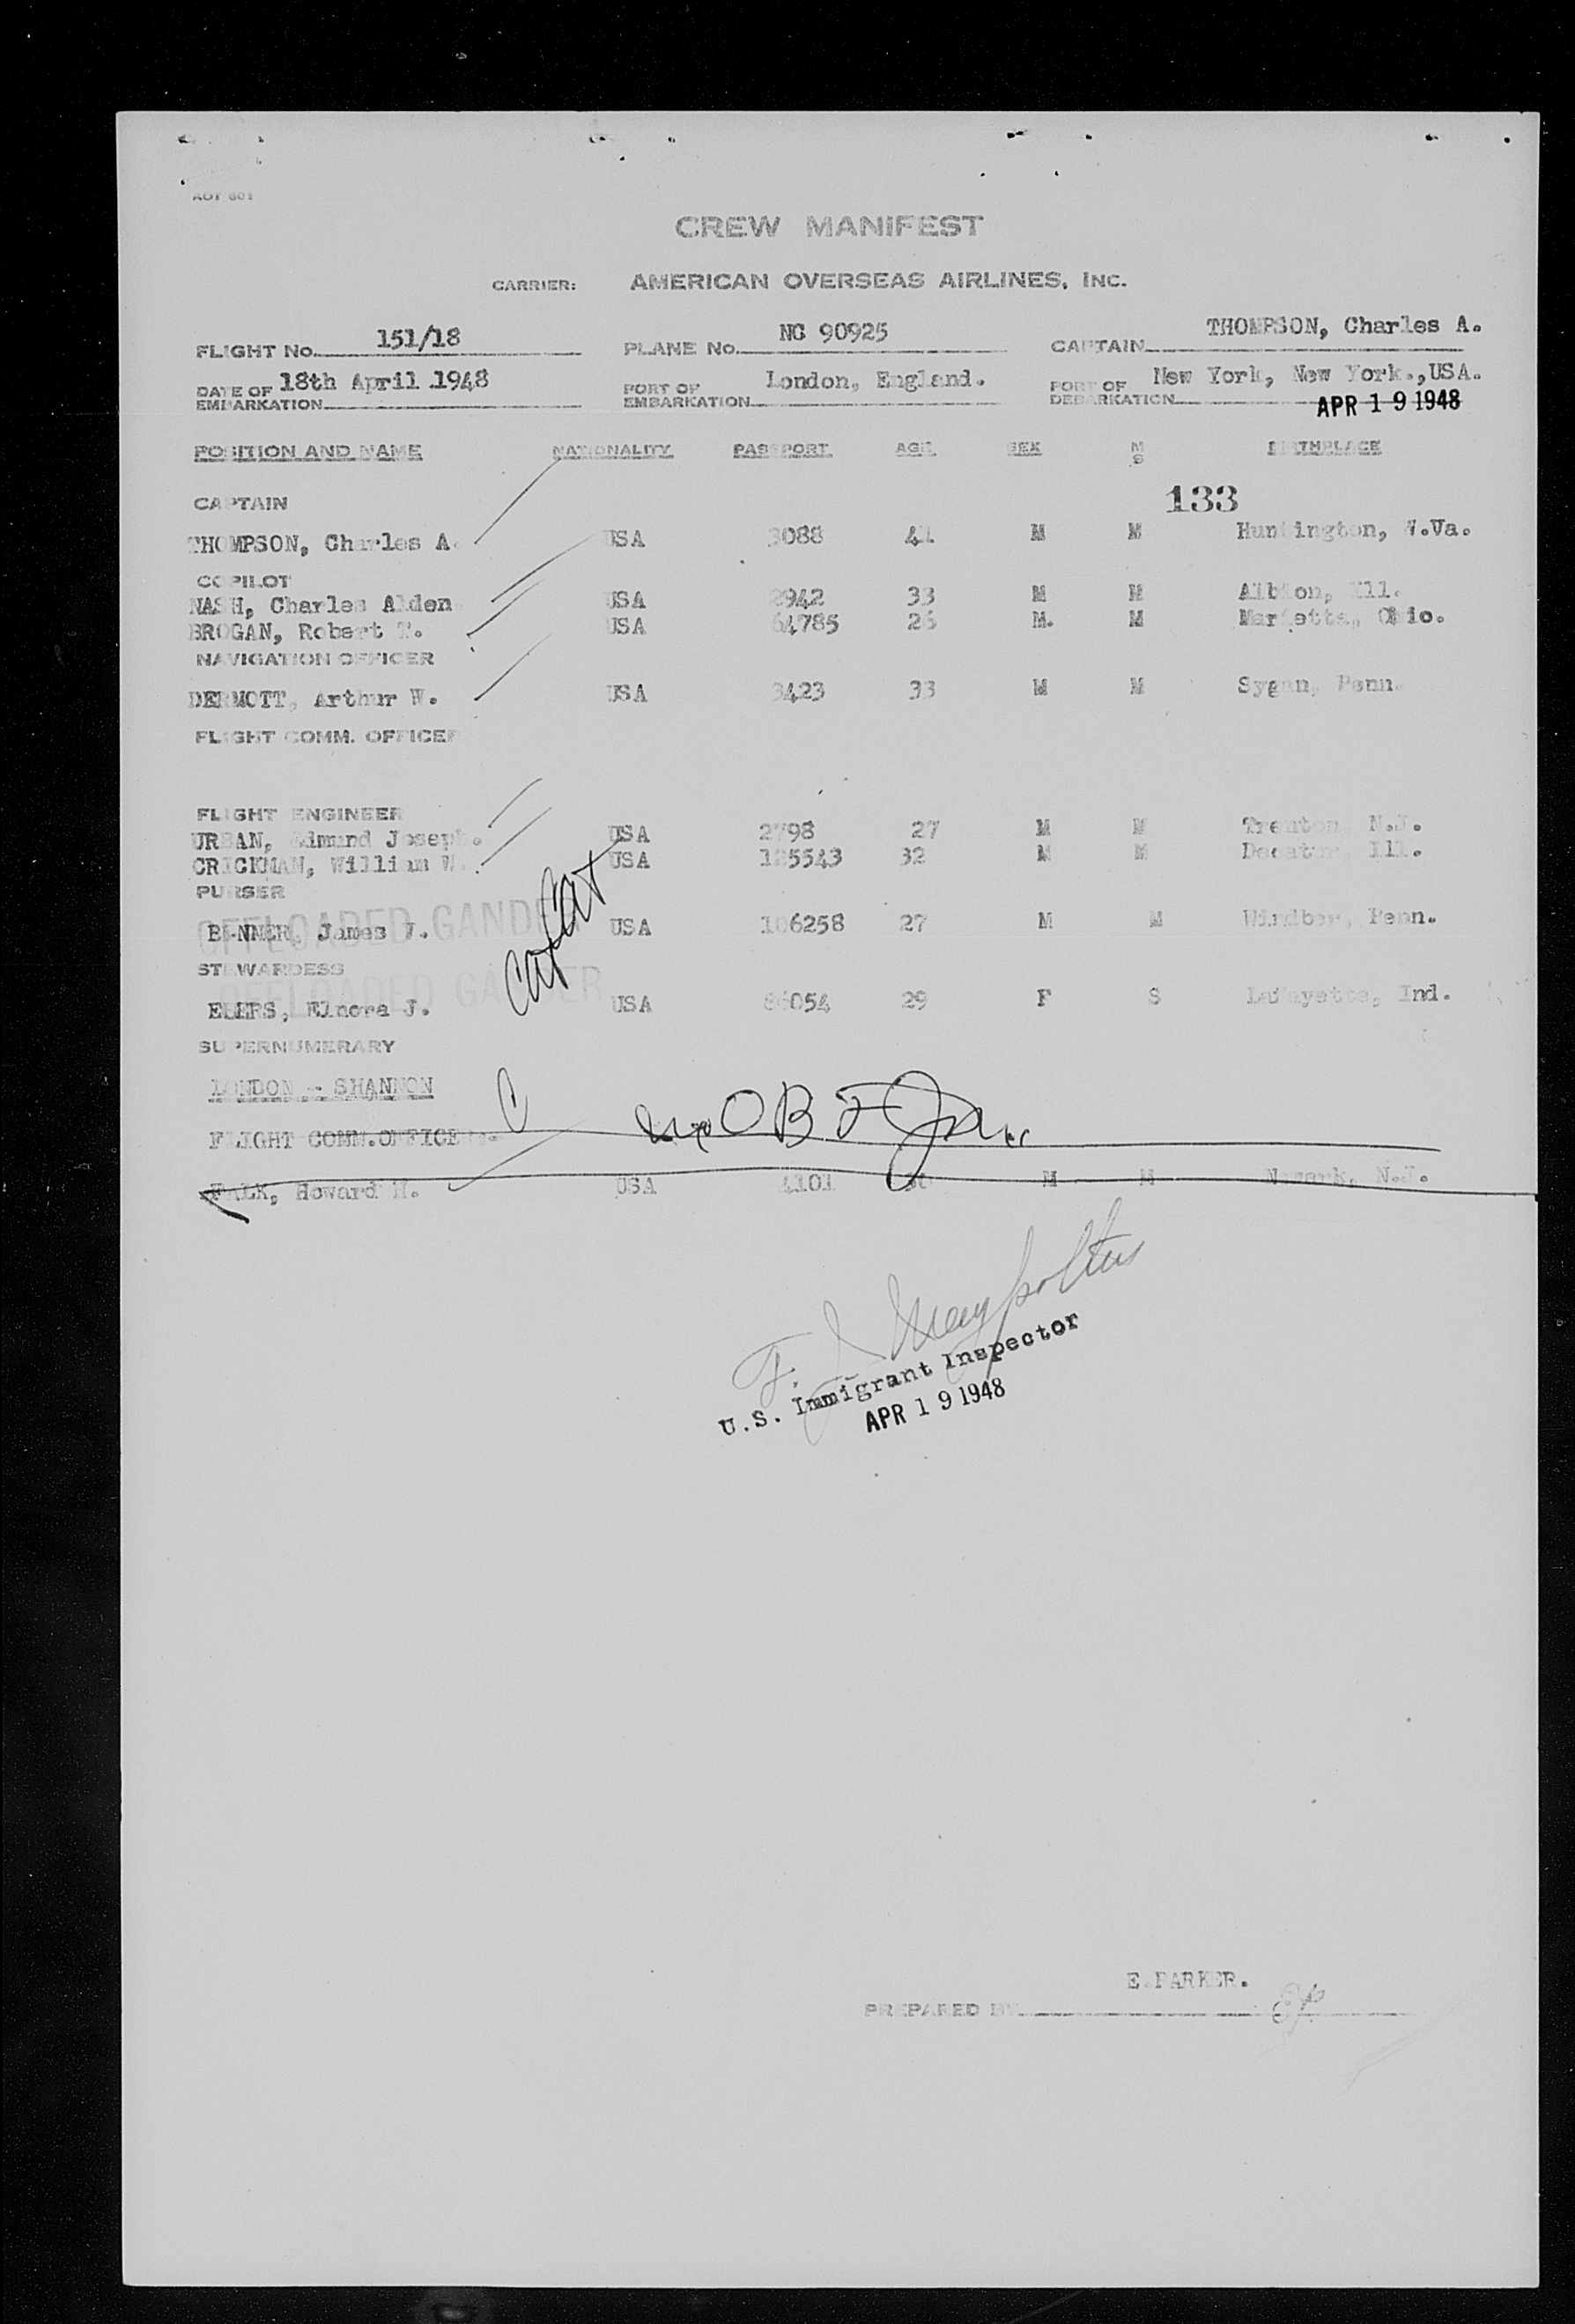 AOT 601
CREW MANIFEST
CARRIER: AMERICAN OVERSEAS AIRLINES, INC.
FLIGHT No. 151/18 PLANE No. NC 90925 CAPTAIN THOMPSON, Charles A.
DATE OF EMBARKATION 18th April 1948 PORT OF EMBARKATION London, England. PORT OF DEBARKATION New York, New York.,USA.
APR 19 1948
POSITION AND NAME NATIONALITY PASSPORT AGE SEX M S BIRTHPLACE
CAPTAIN 133
THOMPSON, Charles A. USA 3088 41 M M Huntington, W.Va.
COPILOT
NASH, Charles Alden USA 2942 33 M M Albion, Ill.
BROGAN, Robert T. USA 64785 26 M. M Marietta, Ohio.
NAVIGATION OFFICER
DERMOTT, Arthur W. USA 3423 33 M M Sygan, Penn.
FLIGHT COMM. OFFICER
FLIGHT ENGINEER
URBAN, Edmund Joseph. USA 2798 27 M M Trenton N.J.
CRICKMAN, William W. USA 125543 32 M M Decatur, Ill.
PURSER
OFFLOADED GANDER
BENNER, James J. USA 106258 27 M M Windber, Penn.
STEWARDESS
OFFLOADED GANDER
EHLERS, Elnora J. USA 86054 29 F S Lafayette, Ind.
SUPERNUMERARY
LONDON - SHANNON
FLIGHT COMM.OFFICER.
FALK, Howard M. USA 4101 30 M M Newark, N.J.
U.S. Immigrant Inspector
APR 19 1948
E.PARKER.
PREPARED BY EP